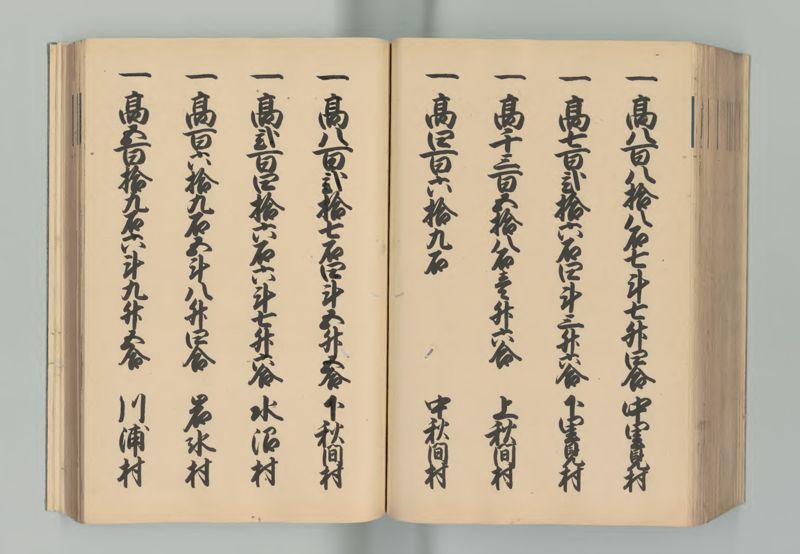 一 高八百八拾八石七斗七升四合 中里見村
一 高七百弐拾六石四斗三升六合 下里見村
一 高千三百五拾八石壱升六合 上秋間村
一 高四百六拾九石 中秋間村
一 高八百弐拾七石四斗五升五合 下秋間村
一 高弐百四拾六石六斗七升六合 水沼村
一 高百六拾九石五斗八升四合 岩氷村
一 高五百拾九石六斗九升五合 川浦村